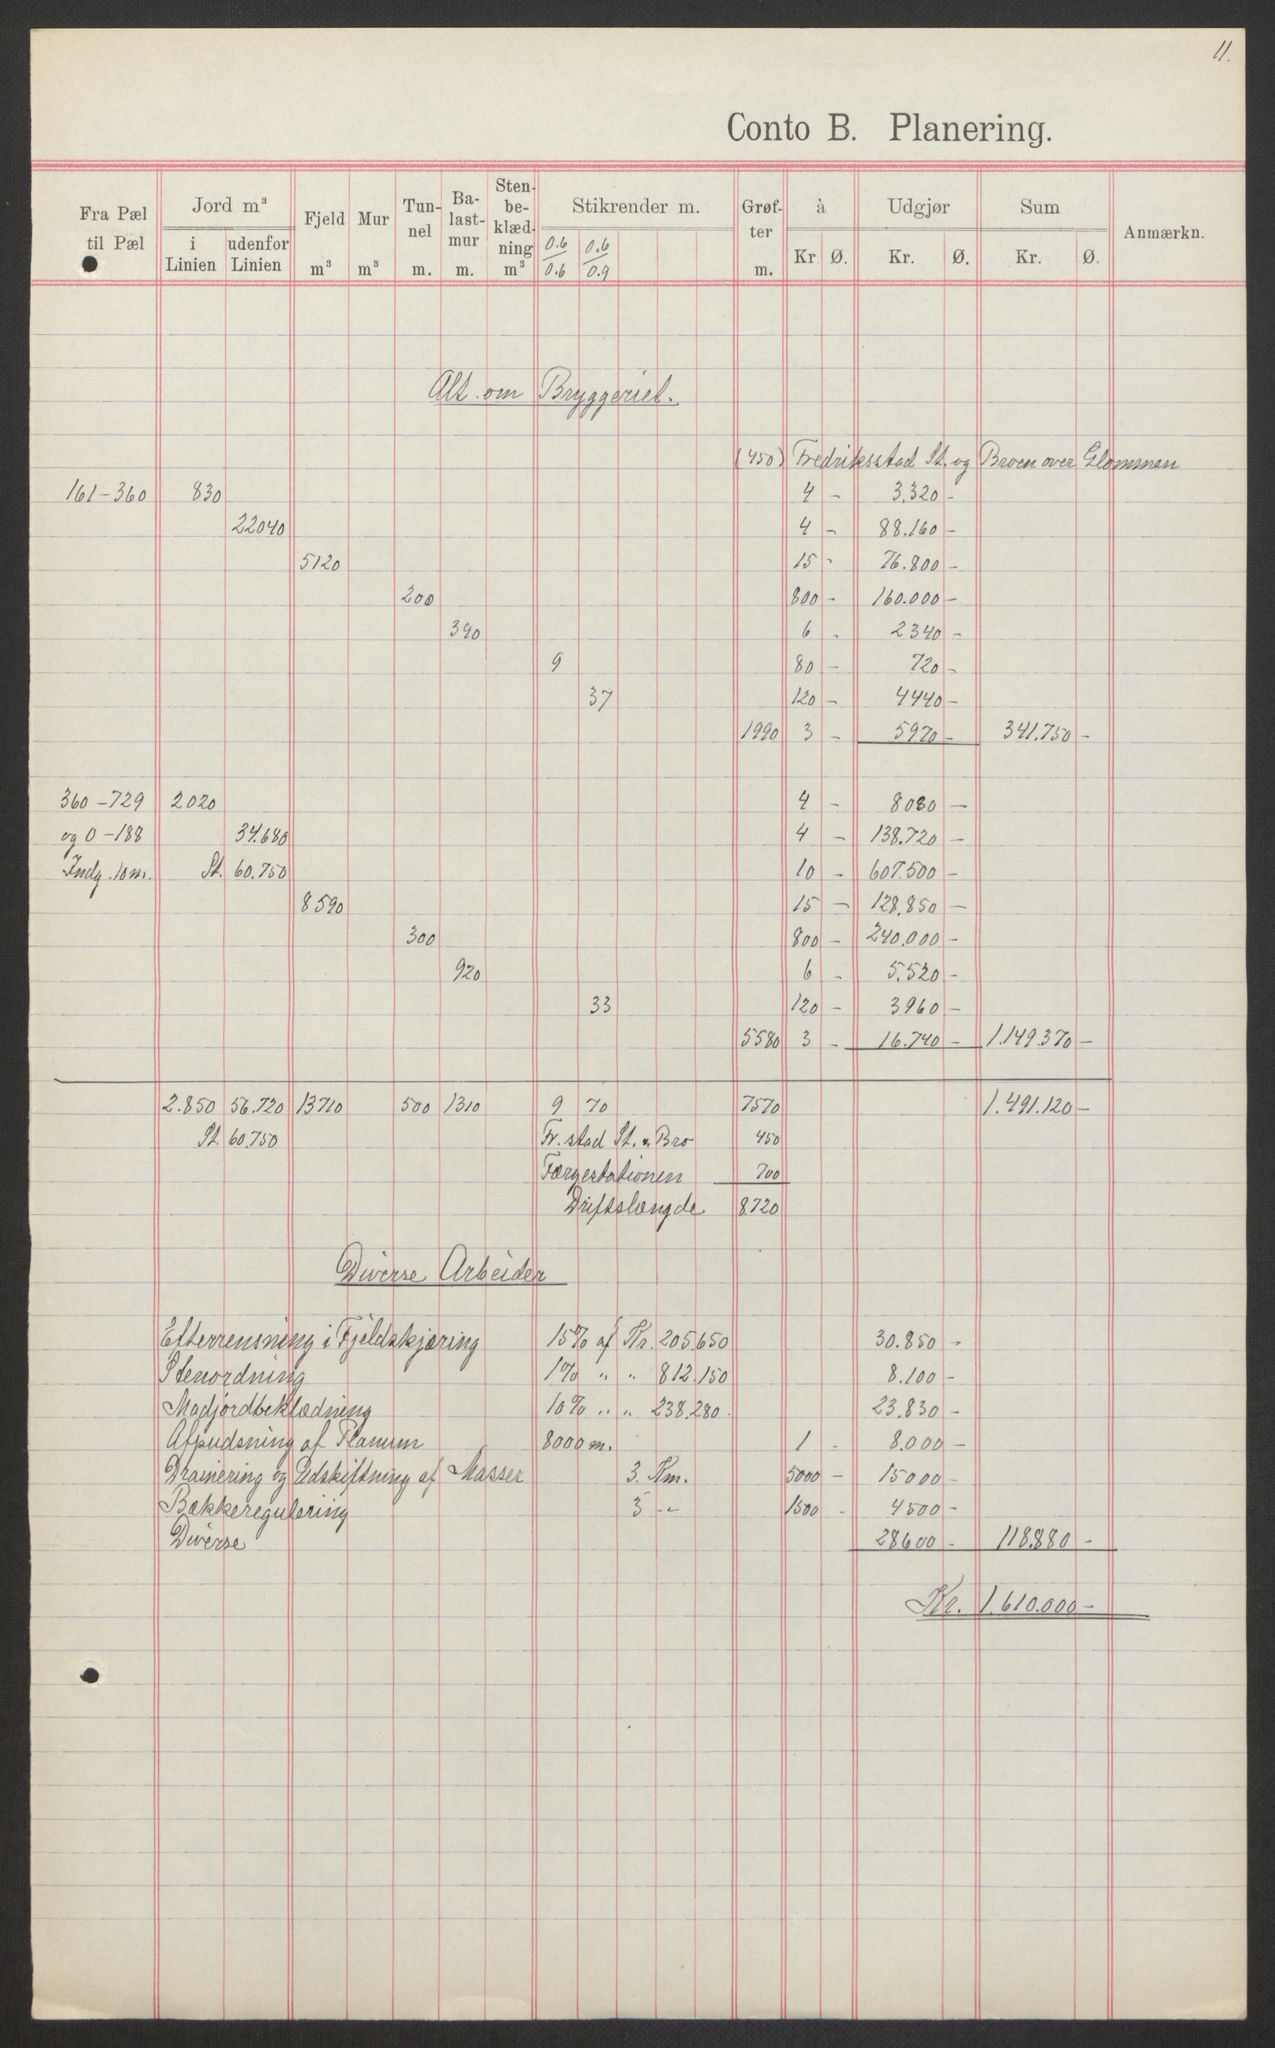 11.
Conto B. Planering.
Fra Pæl til Pæl | Jord m³ i Linien | udenfor Linien | Fjeld m³ | Mur m³ | Tunnel m. | Balastmur m. | Stenbeklædning m³ | Stikrender m. 0.6/0.6 0.6/0.9 | Grøfter m. | à Kr Ø. | Udgjør Kr. Ø. | Sum Kr. Ø. | Anmærkn.
Alt. om Bryggeriet.
(450) Fredriksstad St. og Broen over Glommen
161-360 830 4 - 3.320 -
22040 4 - 88.160 -
5120 15 - 76.800 -
200 800 - 160.000 -
390 6 - 2340 -
9 80 - 720 -
37 120 - 4440 -
1990 3 - 5970 - 341.750 -
360-729 2020 4 - 8080 -
og 0-188 34.680 4 - 138.720 -
Indg. 10 m. St. 60.750 10 - 607.500 -
8590 15 - 128.850 -
300 800 - 240.000 -
920 6 - 5.520 -
33 120 - 3960 -
5580 3 - 16.740 - 1.149.370 -
2.850 56.720 13710 500 1310 9 70 7570 1.491.120 -
St. 60.750 Fr.stad St. & Bro 450
Færgestationen 700
Driftslængde 8.720
Diverse Arbeider
Efterrensning i Fjeldskjæring 15% af Kr. 205.650 30.850 -
Stenordning 1% " " 812.150 8.100 -
Madjordbeklædning 10% " " 238.280. 23.830 -
Afpudsning af Planum 8000 m. 1 - 8.000 -
Drainering og Udskiftning af Masser 3. Km. 5000 - 15000 -
Bækkeregulering 3 -"- 1500 - 4500 -
Diverse 28600 - 118.880 -
Kr. 1.610.000 -